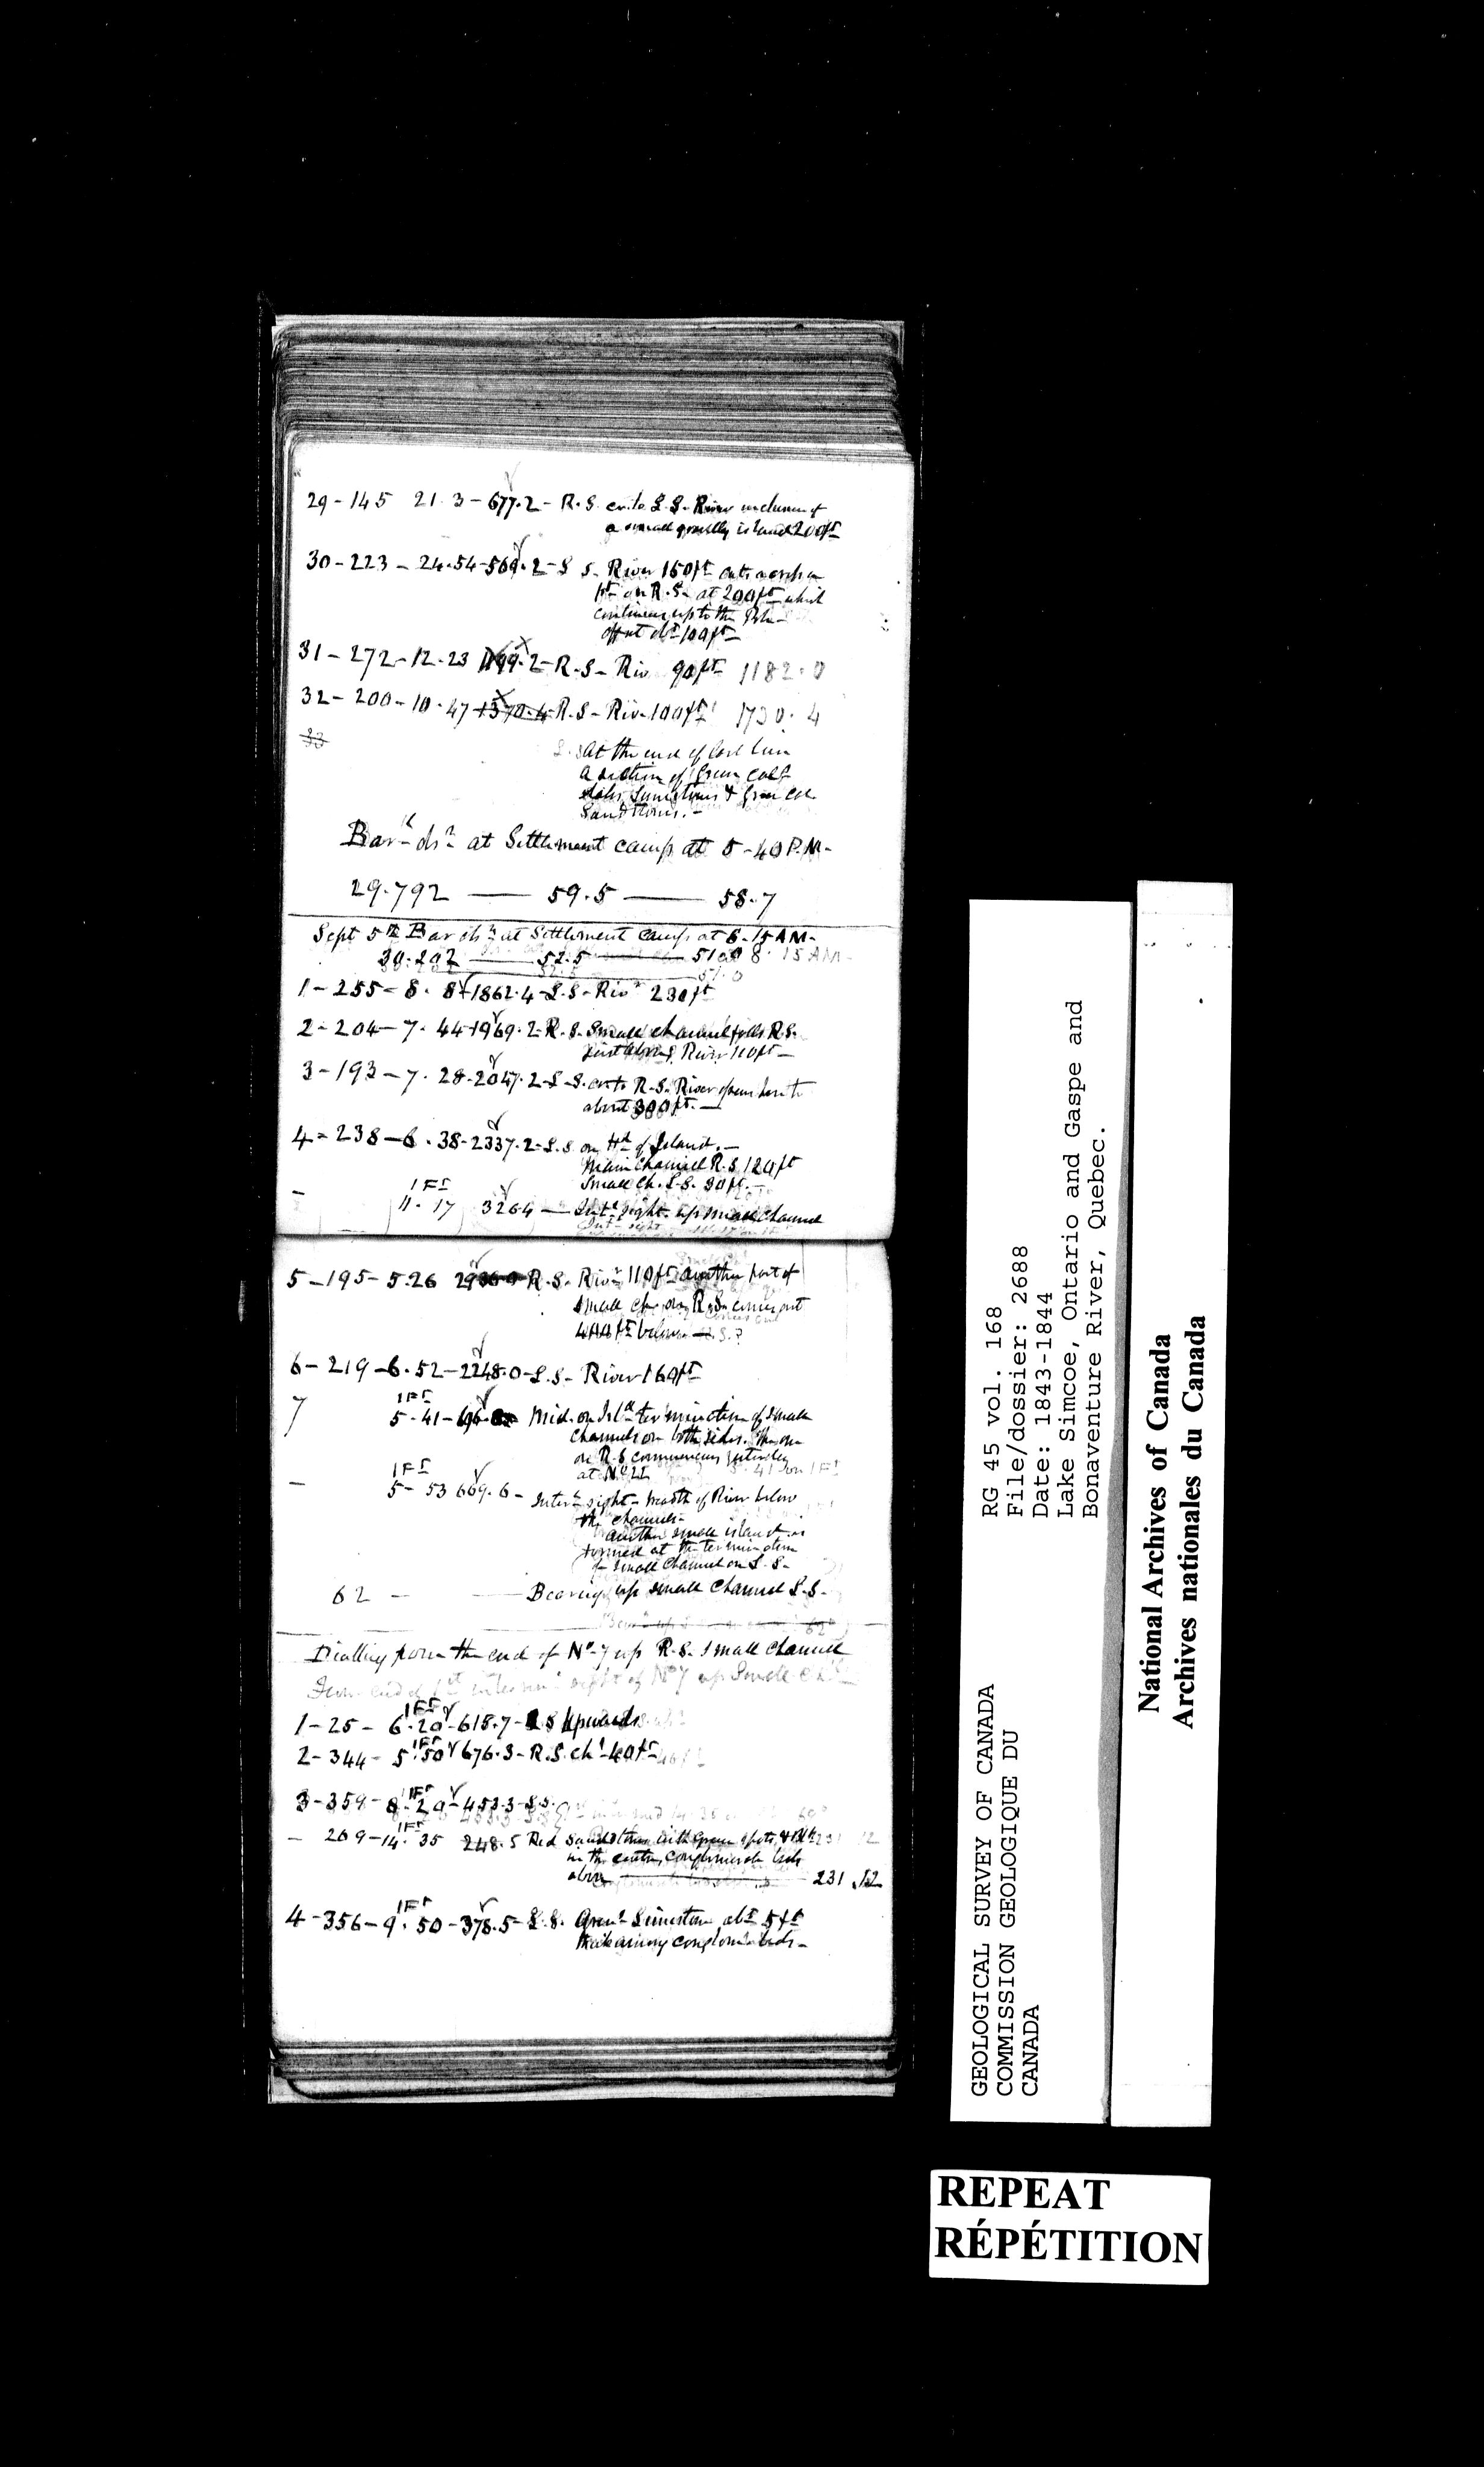 29 - 145 21.3 - 677.2 - R.S. on to S.S. River inclusive of
a small gravelly island 200 ft
30 - 223 - 24.54 - 569.2 - S.S. River 150 ft cuts across a
pt on R.S. at 200 ft which
continues up to the
offset dist 100 ft
31 - 272 - 12.23 1199.2 - R.S - Riv 90 ft 1182.0
32 - 200 - 10.47 1370.4 R.S - Riv. 100 ft 1730.4
33
At the end of last line
a section of Green calc
shales, limestones & green col.
Sandstones. -
Bar. &c at Settlement camp at 5-40 P.M.
29.792 — 59.5 — 58.7
Sept 5th Bar &c at Settlement camp at 6.15 AM.
30.202 — 52.5 — 51.0 8.15 AM
1 - 255 - 8. 8 - 1862.4 - S.S - Rivr 230 ft
2 - 204 - 7. 44 - 1969.2 - R.S. Small channel falls R.S.
just above, River 110 ft -
3 - 193 - 7. 28 - 2047.2 - S.S. on to R.S. River opens here to
about 300 ft. -
4 - 238 - 6. 38 - 2337.2 - S.S on Hd of Island. -
Main Channel R.S 120 ft
Small Ch. S.S. 30 ft. -
1 Ft
- 11. 17 3264 - Intr sight up small channel
5 - 195 - 5.26 R.S. Rivr 110 ft another part of
small ch. on R.S. comes out
400 ft below - S.S.?
6 - 219 - 6.52 - 2248.0 - S.S - River 160 ft
1 Ft
7 5.41 - 696. Mid. on Isld termination of small
channels on both sides. The one
on R.S commences yesterday
at No 21
1 Ft
- 5 - 53 669.6 - Inter sight - mouth of River below
the channels -
another small island is
formed at the termination
of small channel on S.S. -
62 - Bearing up small channel S.S -
Dialling from the end of No 7 up R.S. small channel
From end of 1st interm. sight of No 7 up Small Chl
1 Ft
1 - 25 - 6.20 - 615.7 - S.S Upwards
1 Ft
2 - 344 - 5.50 676.3 - R.S. chl 40 ft
1 Ft
3 - 359 - 8.20 - 453.3 - S.S.
1 Ft
- 269 - 14.35 248.5 Red Sandstone with green spots, &
in the centre, conglomerate beds
above 231.12
1 Ft
4 - 356 - 9.50 - 378.5 - S.S. Green Limestone abt 5 ft
thick among conglom. beds -
GEOLOGICAL SURVEY OF CANADA
COMMISSION GEOLOGIQUE DU
CANADA
RG 45 vol. 168
File/dossier: 2688
Date: 1843-1844
Lake Simcoe, Ontario and Gaspe and
Bonaventure River, Quebec.
National Archives of Canada
Archives nationales du Canada
REPEAT
RÉPÉTITION